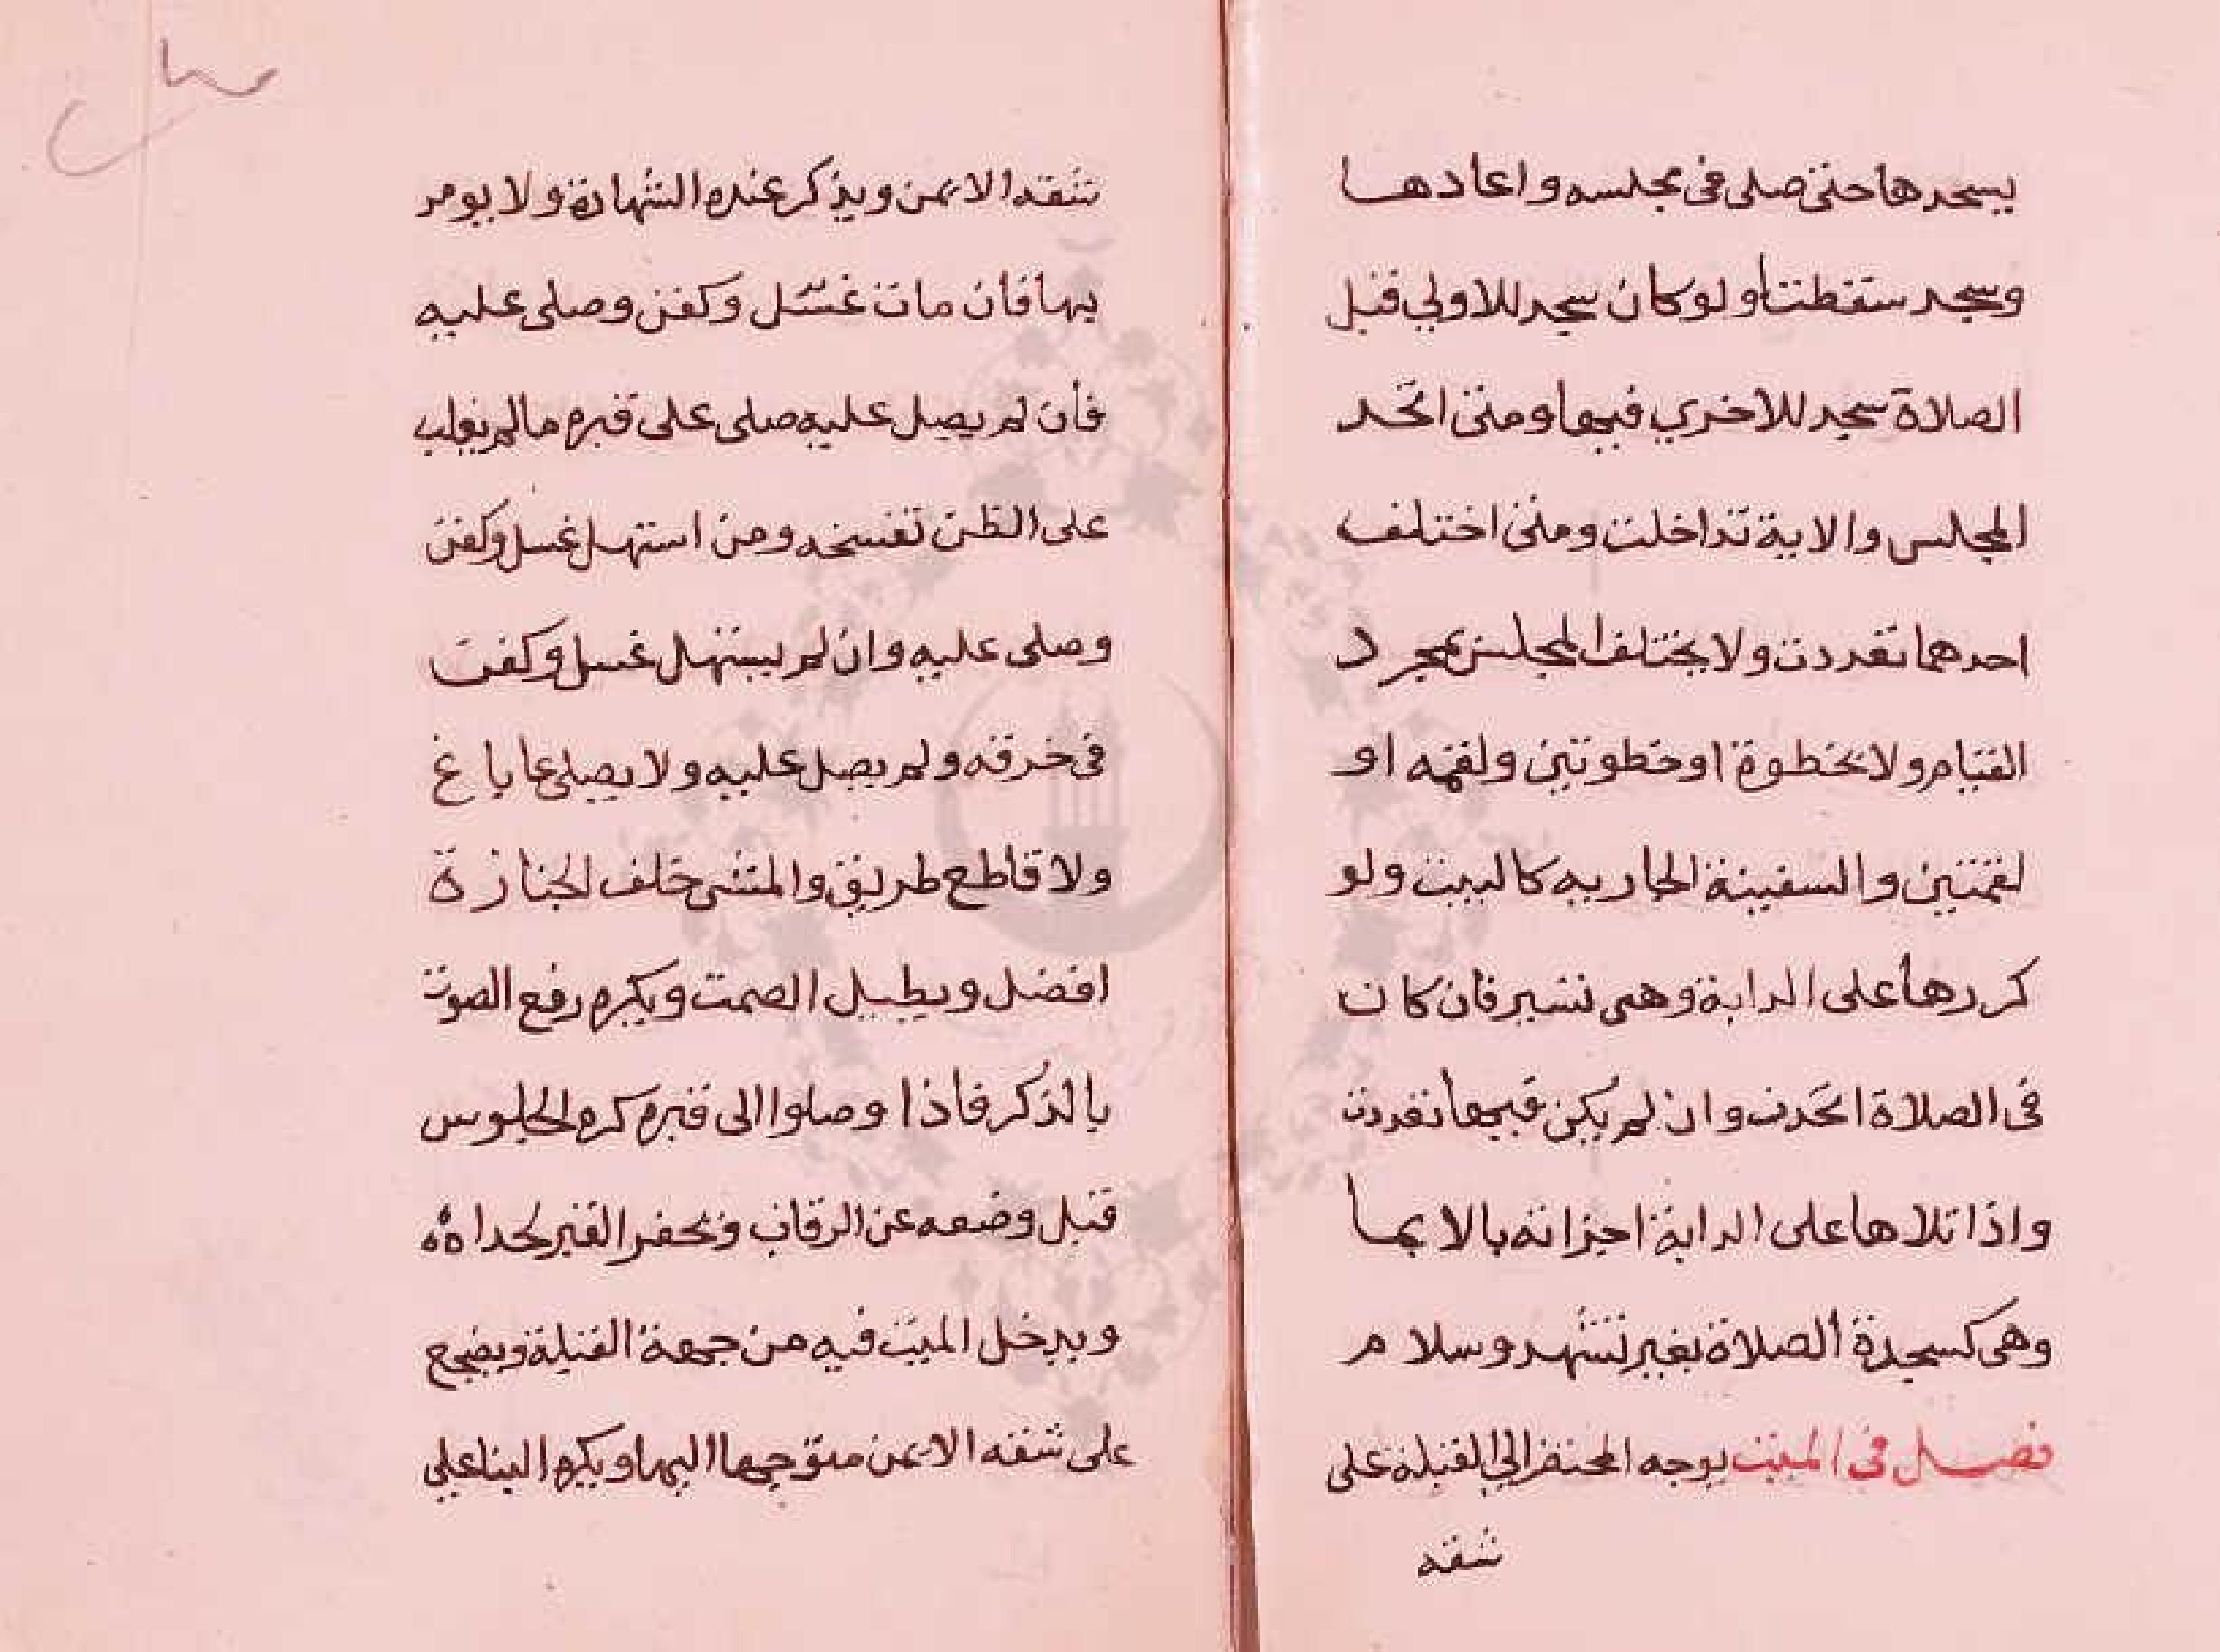 يسجدها حتى صلى فى مجلسه واعادها
وسجد سقطتا ولو كان سجد للاولي قبل
الصلاة سجد للاخري فيها ومتى اتحد
المجلس والاية تداخلت ومتى اختلف
احدهما تعددت ولا يختلف المجلس بمجرد
القيام ولا بخطوة اوخطوتين ولقمه او
لقمتين والسفينة الجاريه كالبيت ولو
كررها على الدابة وهى تسير فان كان
فى الصلاة اتحدت وان لم يكن فيها تعددت
واذا تلاها على الدابة اجزاته بالايما
وهى كسجدة الصلاة بغير تشهد وسلام
فصل فى الميت يوجه المحتضر الي القبلة على
شقه
شقه الايمن ويذكر عنده الشهادة ولا يومر
بها فان مات غسل وكفن وصلى عليه
فان لم يصل عليه صلى على قبره مالم يغلب
على الظن تفسخه ومن استهل غسل وكفن
وصلى عليه وان لم يستهل غسل وكفن
فى خرقه ولم يصل عليه ولا يصلى عا باغ
ولا قاطع طريق والمشى خلف الجنازة
افضل ويطيل الصمت ويكره رفع الصوت
بالذكر فاذا وصلوا الى قبره كره الجلوس
قبل وضعه عن الرقاب ويحفر القبر لحدا
ويدخل الميت فيه من جهة القبلة ويضجع
على شقه الايمن متوجها اليها ويكره البنا علي